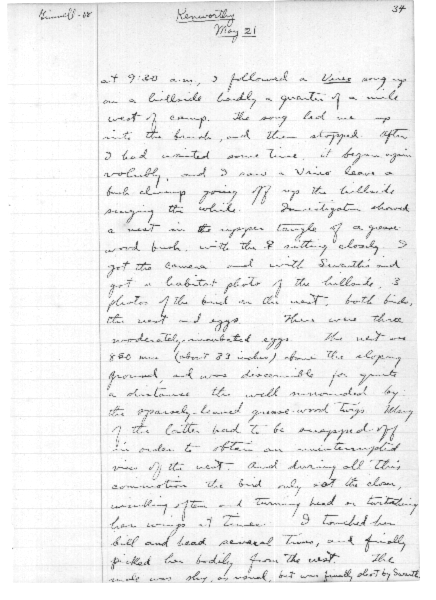 Grinnell-08
Kenworthy
May 21
34
at 9:30 a.m., I followed a Vireo song up
on a hillside hardly a quarter of a mile
west of camp. The song led me up
into the brush, and then stopped. After
I had waited some time, it began again
volubly, and I saw a Vireo leave a
bush clump going off up the hillside
singing the while. Investigation showed
a nest in the upper tangle of a grease-
wood bush, with the ♀ sitting closely. I
got the camera and with Swarth's aid
got a habitat photo of the hillside, 3
photos of the bird on the nest, both birds,
the nest and eggs. There were three
moderately-incubated eggs. The nest was
850 mm (about 33 inches) above the sloping
ground, and was discernible for quite
a distance tho well surrounded by
the sparsely-leaved grease-wood twigs. Many
of the latter had to be snapped off
in order to obtain an uninterrupted
view of the nest. And during all this
commotion the bird only sat the closer,
often and turning head or twitching
her wings at times. I touched her
bill and head several times, and finally
picked her bodily from the nest. The
male was shy, as usual, but was finally shot by Swarth